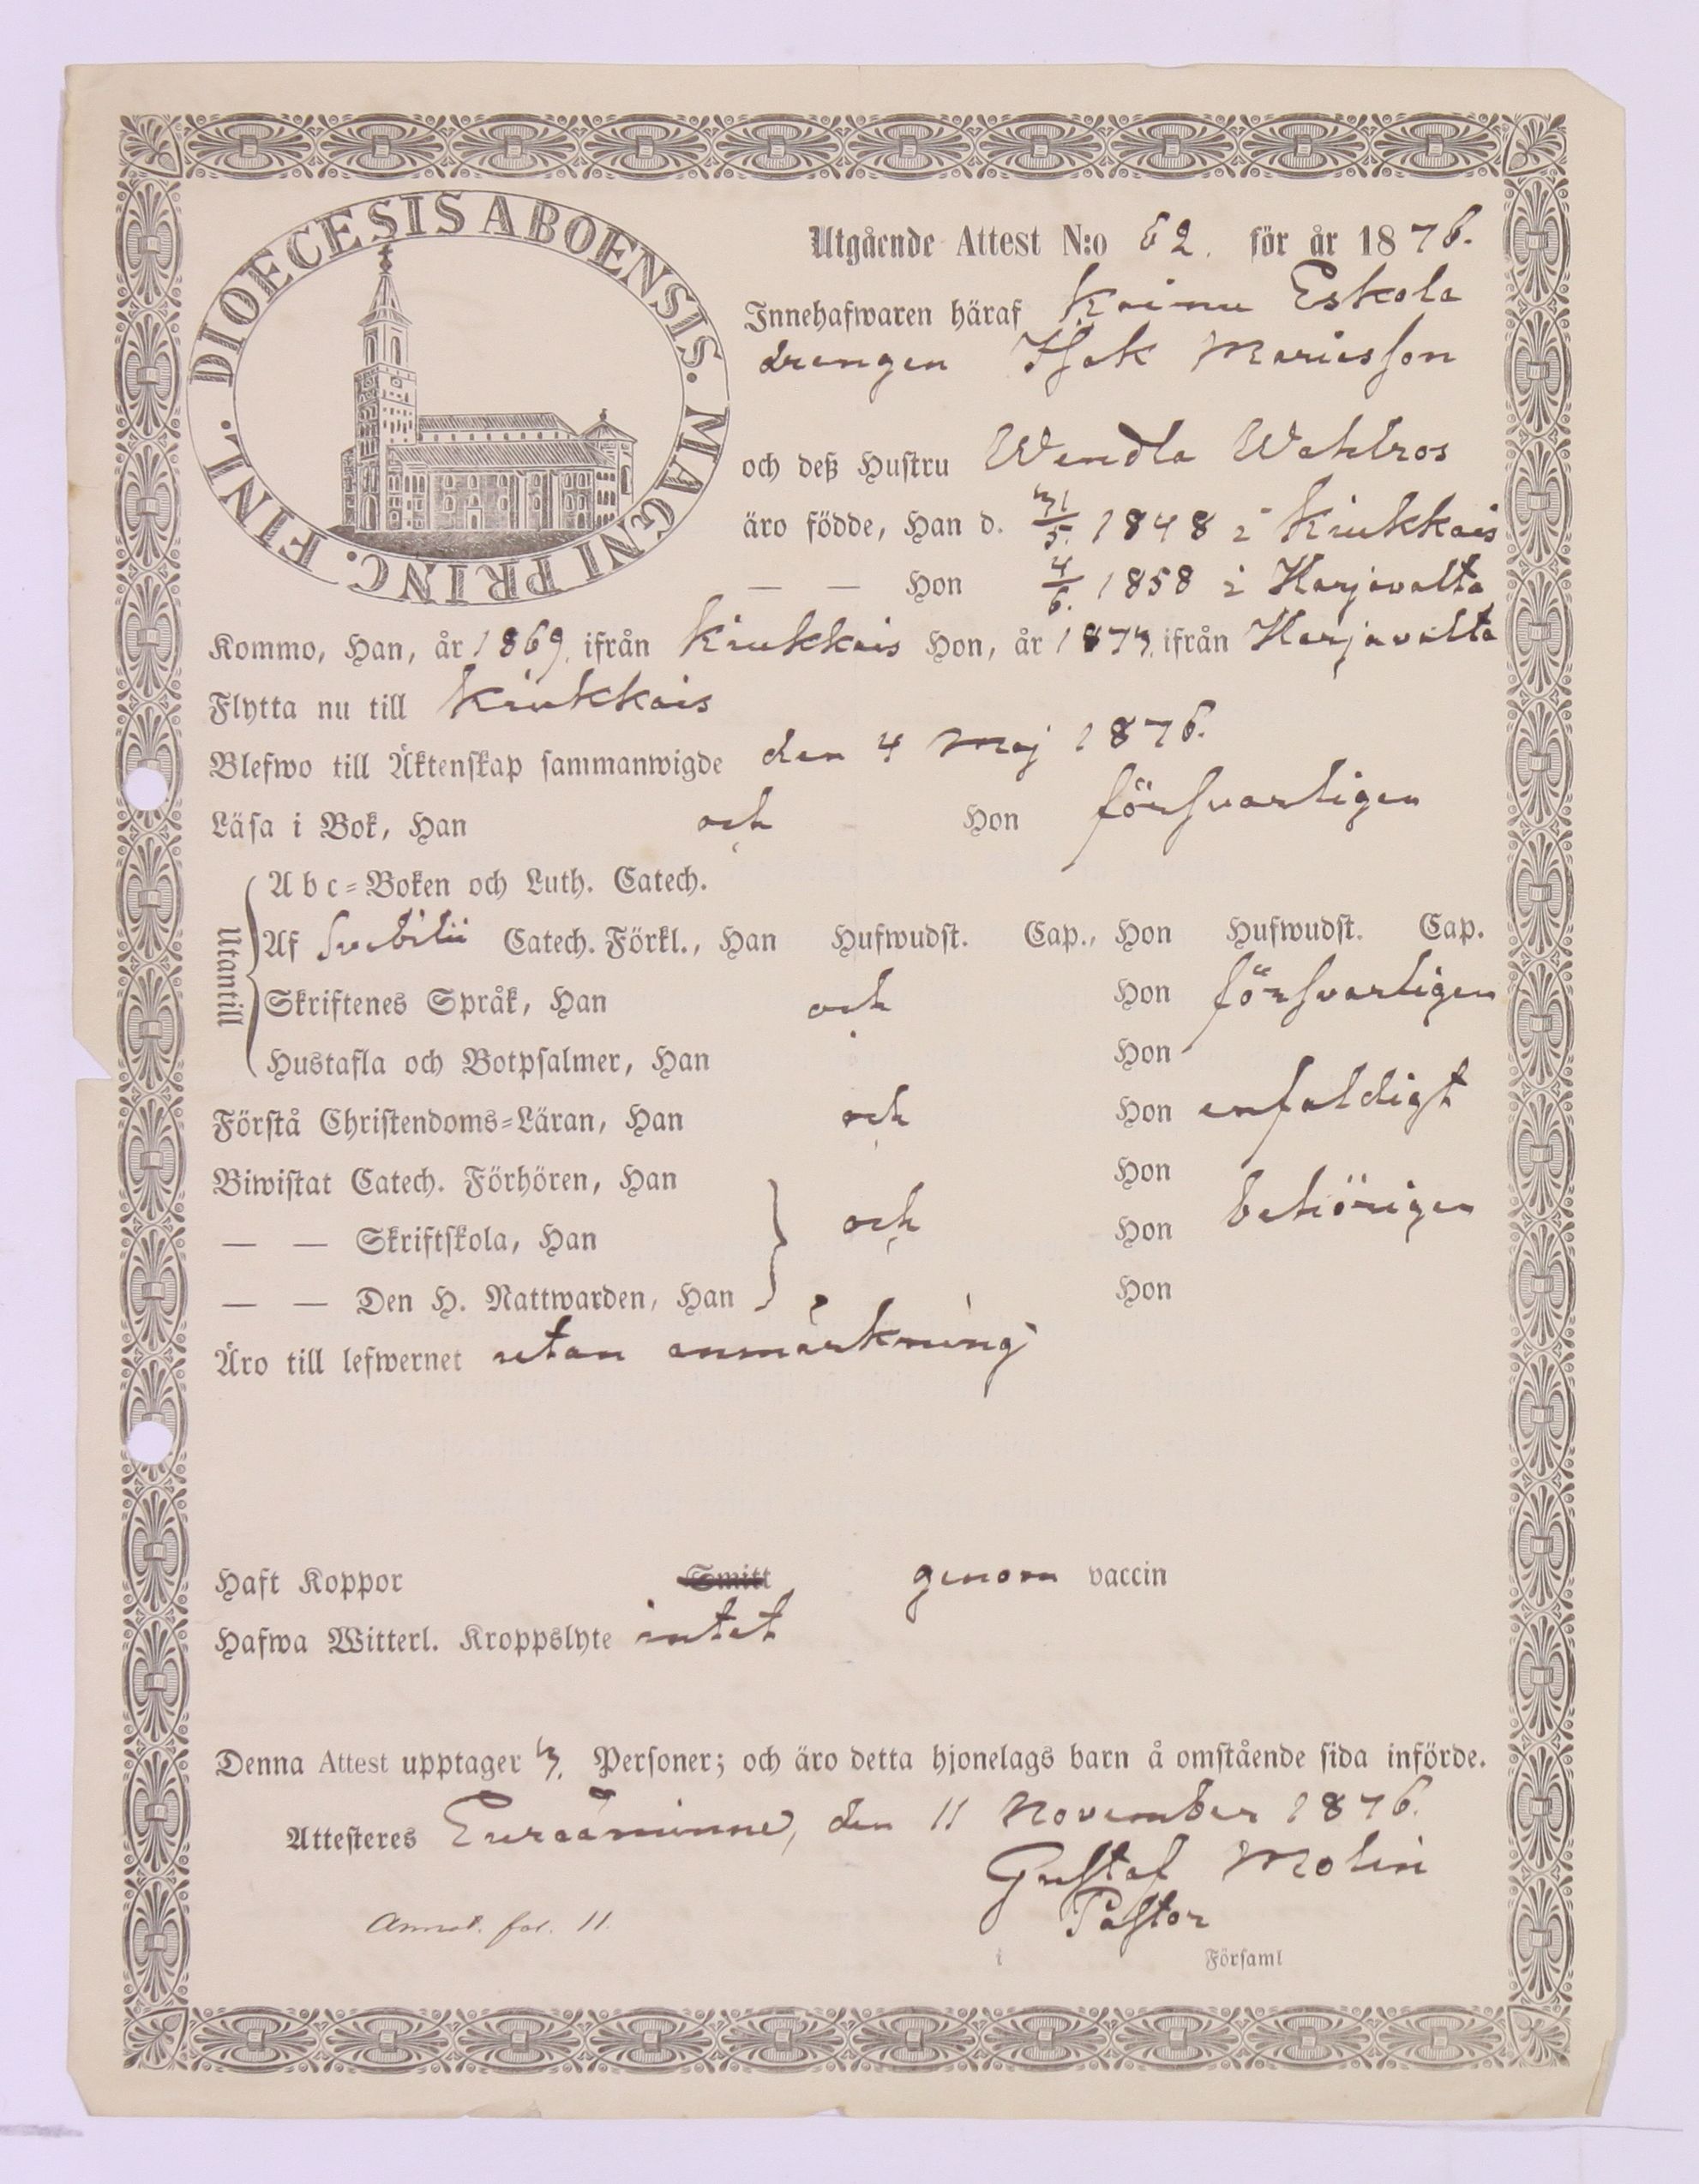 DIOECESIS ABOENSIS. MAGNI PRINC. FINL.
Utgående Attest N:o 62. för år 1876.
Innehafwaren häraf Krinu Eskola
drengen Isak Mariasson
och deß Hustru Wendla Wahlros
äro födde, Han d. 31/5. 1848 i Kiukkais
— — Hon 4/6. 1858 i Harjavalta
Kommo, Han, år 1869. ifrån Kiukkais Hon, år 1873. ifrån Harjavalta
Flytta nu till Kiukkais
Blefwo till Äktenskap sammanwigde den 4 Maj 1876.
Läsa i Bok, Han och Hon försvarligen
Utantill
Abc=Boken och Luth. Catech.
Af Svebilii Catech. Förkl., Han Hufwudst. Cap., Hon Hufwudst. Cap.
Skriftenes Språk, Han och Hon försvarligen
Hustafla och Botpsalmer, Han Hon
Förstå Christendoms=Läran, Han och Hon enfaldigt
Biwistat Catech. Förhören, Han Hon
— — Skriftskola, Han och Hon behörigen
— — Den H. Nattwarden, Han Hon
Äro till lefwernet utan anmärkning
Haft Koppor Smitt genom vaccin
Hafwa Witterl. Kroppslyte intet
Denna Attest upptager 3. Personer; och äro detta hjonelags barn å omstående sida införde.
Attesteres Euraåminne, den 11 November 1876.
Gustaf Molin
Pastor
Annot. fol. 11.
i Församl